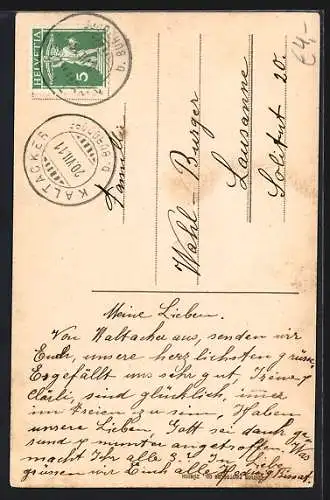 HELVETIA
5
KALTACKER
20.VII.11
b. BURGDORF
€4,-
Familie
Wahl-Burger
Lausanne
Solitut 20.
Meine Lieben.
Von Kaltacker aus, senden wir
Euch, unsere herzlichsten grüsse
Es gefällt uns sehr gut, Irène y
Clärli, sind glücklich, imer
im Freien zu sein, Haben
unsere Lieben, Gott sei dank ge-
send y munter angetroffen. Was
macht Ihr alle 3. In Liebe
grüssen wir Euch alle Hedwig